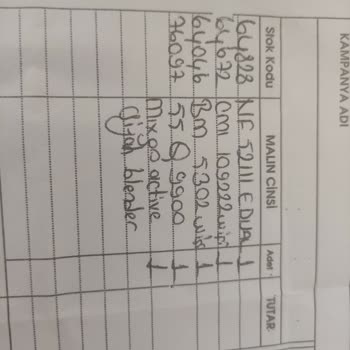 KAMPANYA ADI
Stok Kodu MALIN CİNSİ Adet TUTAR
64828 NF 52111 E Dual 1
64672 CMI 109222 wifi 1
64046 BM 5302 wifi 1
76097 55 Q 9900 1
Mixgo active 1
dijan blender